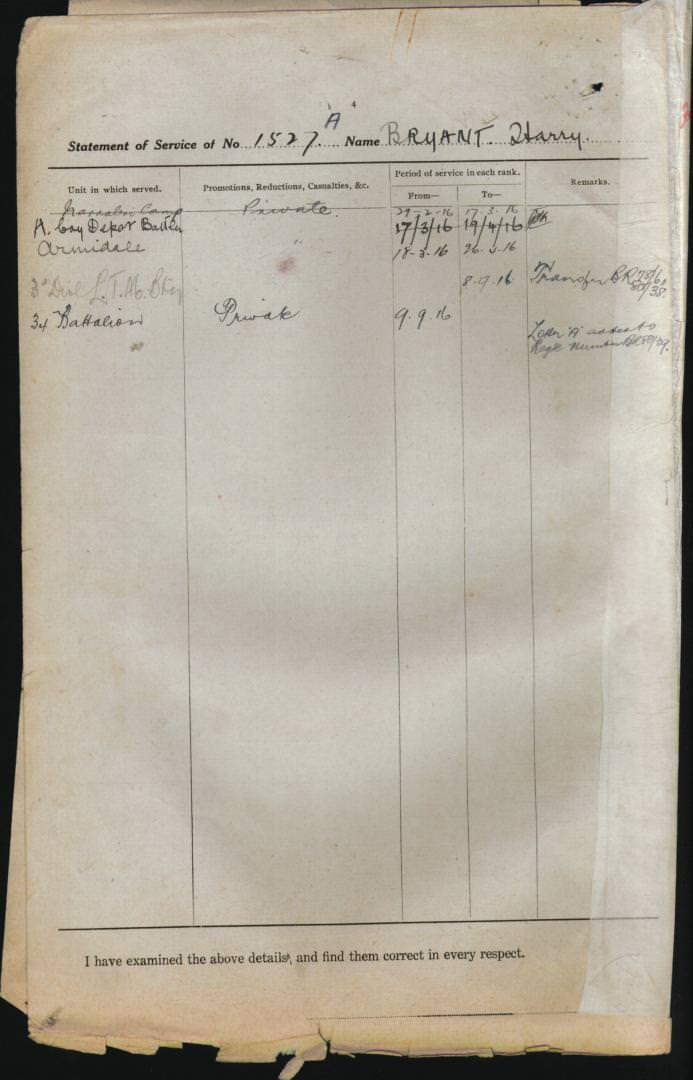 A
Statement of Service of No 1527. Name BRYANT. Harry.
Unit in which served.
Promotions, Reductions, Casualties, &c.
Period of service in each rank.
From—
To—
Remarks.
Camp Private 29-2-16 17.3.16
A. Coy Depot Battn 17/3/16 19/4/16
Armidale " 18-3-16 26.16
3rd Divl L.T.M. Bty 8.9.16 Transfer BR 78/6.
80/38.
34 Battalion Private 9.9.16
Letter "A" added to
Regtl number BR 80/39.
I have examined the above details, and find them correct in every respect.